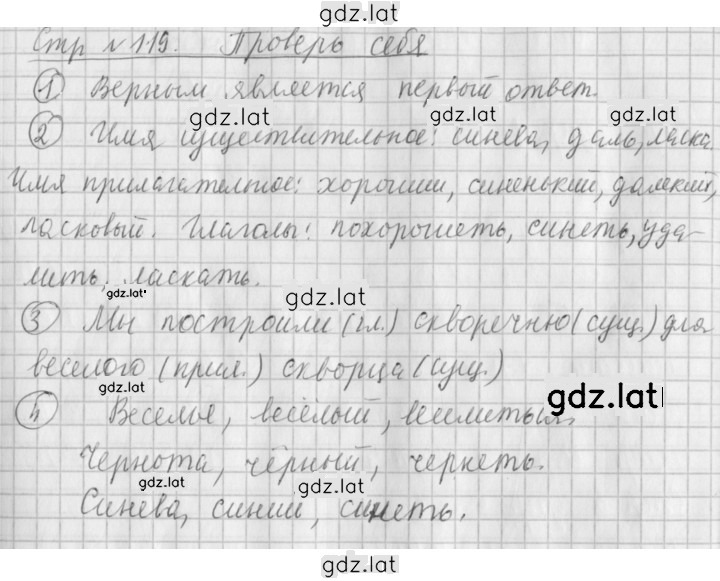 gdz.lat
Стр №119. Проверь себя
gdz.lat
① Верным является первый ответ.
gdz.lat gdz.lat
② Имя существительное: синева, даль, ласка.
Имя прилагательное: хороший, синенький, далекий,
ласковый. Глаголы: похорошеть, синеть, уда-
лить, ласкать.
gdz.lat gdz.lat
③ Мы построили (гл.) скворечню (сущ.) для
веселого (прил.) скворца (сущ.)
gdz.lat gdz.lat
④ Веселье, весёлый,
Чернота, чёрный, чернеть.
gdz.lat gdz.lat
Синева, синий, синеть.
gdz.lat